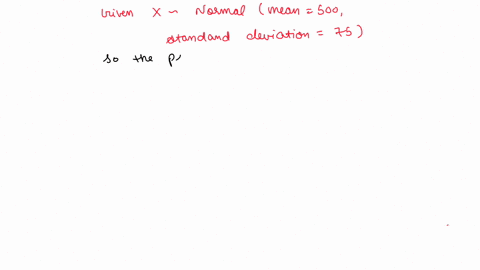 Given X ~ Normal (mean = 500,
standard deviation = 75)
so the p